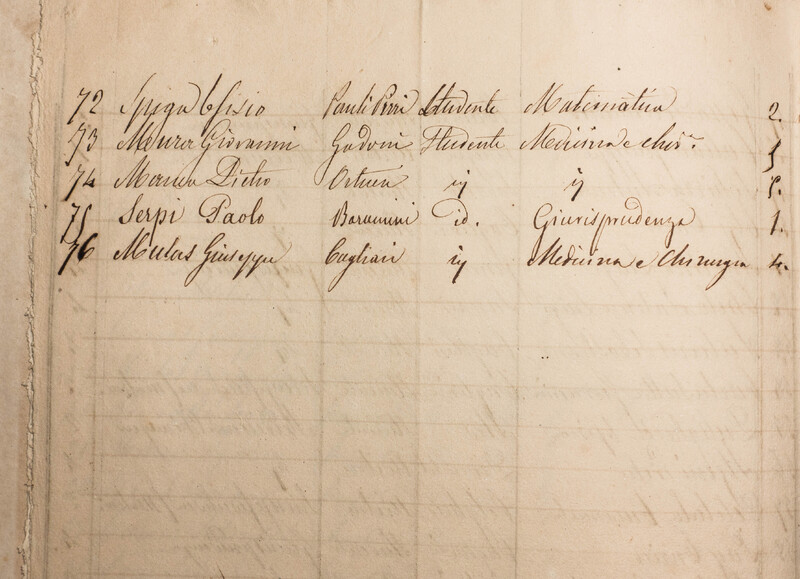 72 Spiga Efisio Pauli Pirri Studente Matematica 2.
73 Meurer Giovanni Gadoni Studente Medicina e Chir.ª 5
74 Manca Pietro ij ij 5.
75 Serpi Paolo Barumini id. Giurisprudenza 1.
76 Mulas Giuseppe Cagliari ij Medicina e Chirurgia 4.